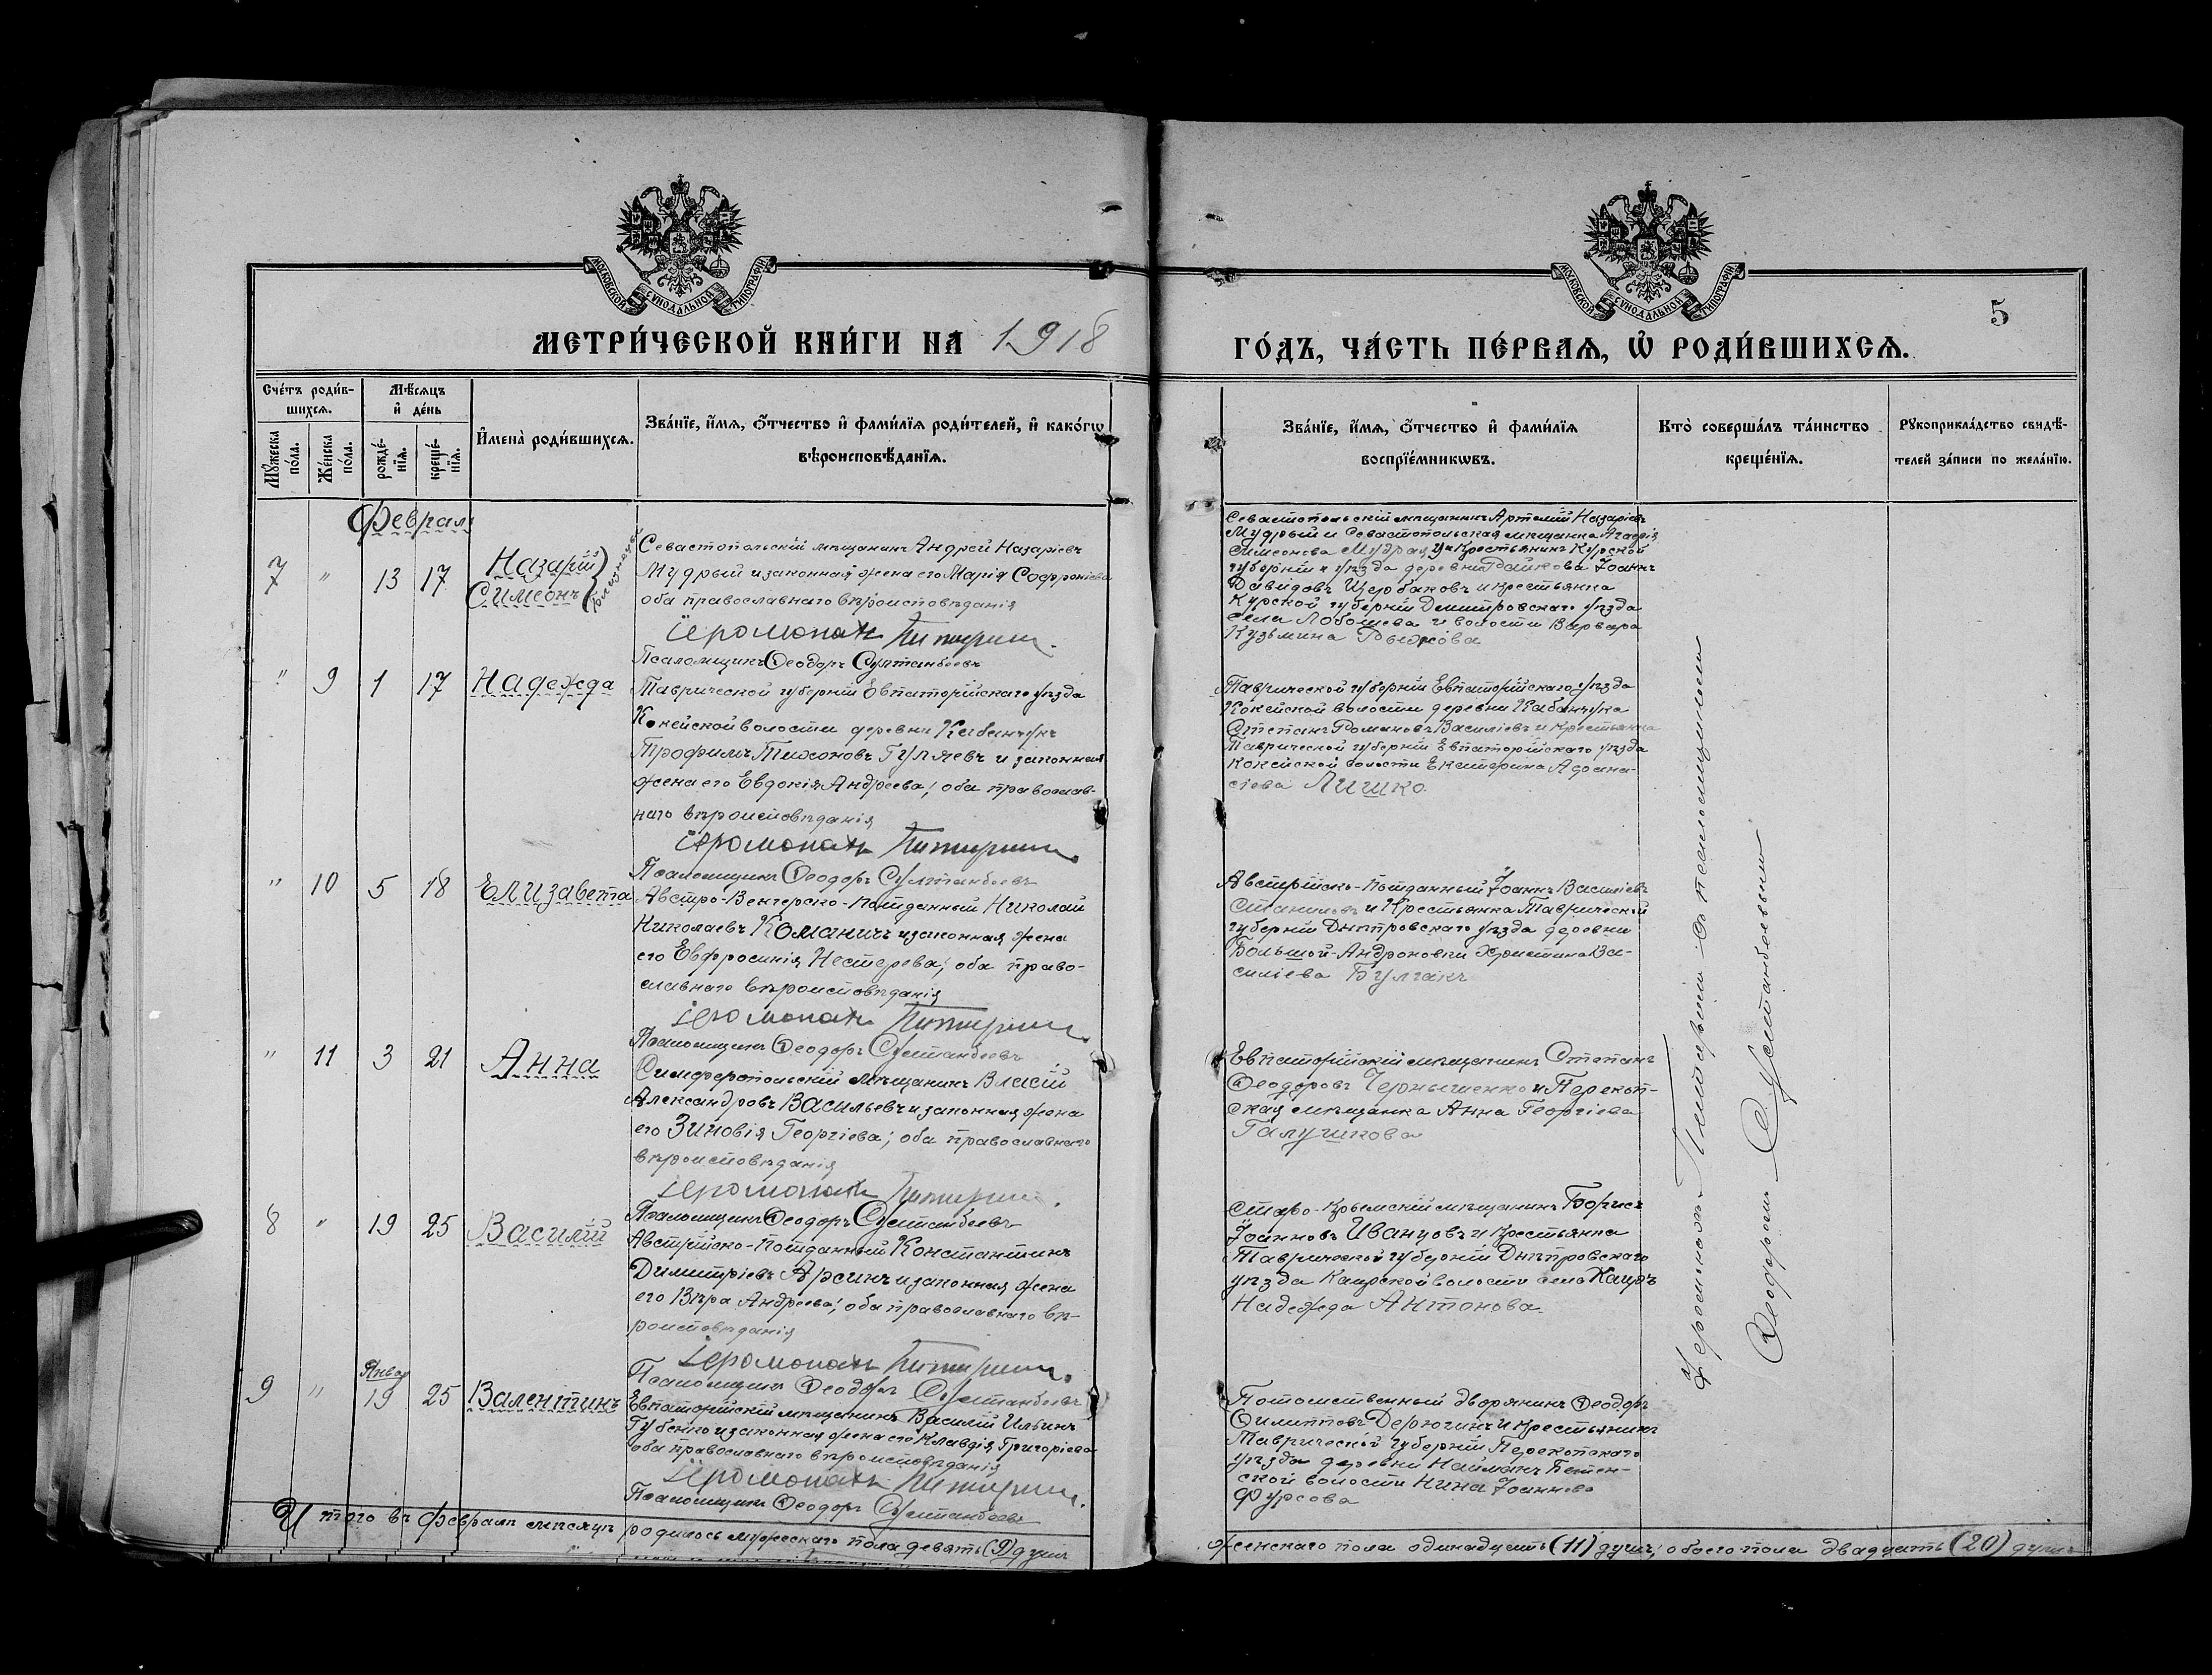 МОСКОВСКОЙ СѴНОДАЛЬНОЙ ТИПОГРАФІИ
МОСКОВСКОЙ СѴНОДАЛЬНОЙ ТИПОГРАФІИ
5
МЕТРИ́ЧЕСКОЙ КНИ́ГИ НА 1918
ГО́ДЪ, ЧА́СТЬ ПЕ́РВАѦ, Ѡ҆ РОДИ́ВШИХСѦ.
Сче́тъ роди́в-
шихсѧ.
Мѣ́сѧцъ
и҆ де́нь
Мꙋ́жеска
по́ла.
Же́нска
по́ла.
рожде́-
нїѧ.
креще́-
нїѧ.
И҆мена̀ роди́вшихсѧ.
Зва́нїе, и҆́мѧ, ѻ҆́тчество и҆ фами́лїѧ роди́телей, и҆ како́гѡ
вѣроисповѣ́данїѧ.
Зва́нїе, и҆́мѧ, ѻ҆́тчество и҆ фами́лїѧ
воспрїе́мникѡвъ.
Кто̀ соверша́лъ та́инство
креще́нїѧ.
Рꙋкоприкла́дство свидѣ́-
телей за́писи по жела́нїю.
Февраль
7 " 13 17 Назарій
Симеонъ
близнецы
Севастопольскій мѣщанинъ Андрей Назаріевъ
Мудрый и законная жена его Марія Софроніева
оба православнаго вѣроисповѣданія
Іеромонахъ Питирим.
Псаломщикъ Ѳеодоръ
Севастопольскій мѣщанинъ Артемій Назаріевъ
Мудрый и Севастопольская мѣщанка Агафія
Симеонова Мудрая; Крестьянинъ Курской
губерніи уѣзда деревни Іоаннъ
Давидовъ Щербаковъ и крестьянка
Курской губерніи Димитровскаго уѣзда
села Лобошева и волости Варвара
Кузьмина Рыжкова
" 9 1 17 Надежда
Таврической губерніи Евпаторійскаго уѣзда
Кокейской волости деревни
Трофимъ Тихоновъ Гуляевъ и законная
жена его Евдокія Андреева; оба православ-
наго вѣроисповѣданія
Іеромонахъ Питирим.
Псаломщикъ Ѳеодоръ
Таврической губерніи Евпаторійскаго уѣзда
Кокейской волости деревни
Стефанъ Романовъ Василіевъ и Крестьянка
Таврической губерніи Евпаторійскаго уѣзда
Кокейской волости Екатерина Афана-
сіева Лишко.
" 10 5 18 Елизавета
Австро-Венгерско-Подданный Николай
Николаевъ Команичъ и законная жена
его Евфросинія Нестерева; оба право-
славнаго вѣроисповѣданія
Іеромонахъ Питирим.
Псаломщикъ Ѳеодоръ
Австрійско-Подданный Іоаннъ Василіевъ
и Крестьянка Таврической
губерніи Днѣпровскаго уѣзда деревни
Большой-Андроновки Христина Ва-
силіева Булгакъ
" 11 3 21 Анна
Симферопольскій мѣщанинъ Власій
Александровъ Васильевъ и законная жена
его Зиновія Георгіева; оба православнаго
вѣроисповѣданія
Іеромонахъ Питирим.
Псаломщикъ Ѳеодоръ
Евпаторійскій мѣщанинъ Стефанъ
Ѳеодоровъ Чернышенко и Перекоп-
ская мѣщанка Анна Георгіева
Галушкова
8 " 19 25 Василій
Австрійско-Подданный Константинъ
Димитріевъ Арсинъ и законная жена
его Вѣра Андреева; оба православнаго вѣ-
роисповѣданія
Іеромонахъ Питирим.
Псаломщикъ Ѳеодоръ
Старо-Крымскій мѣщанинъ Борисъ
Іоанновъ Иванцовъ и Крестьянка
Таврической губерніи Днѣпровскаго
уѣзда Каирской волости села Каиръ
Надежда Антонова
Январ
9 " 19 25 Валентинъ
Евпаторійскій мѣщанинъ Василій Ильинъ
Губенко и законная жена его Клавдія Григоріева
оба православнаго вѣроисповѣданія
Іеромонахъ Питирим.
Псаломщикъ Ѳеодоръ
Потомственный дворянинъ Ѳеодоръ
Филипповъ Дерюгинъ и крестьянинъ
Таврической губерніи Перекопскаго
уѣзда деревни Найманъ
ской волости Нина Іоаннова
Фурсова
Іеромонахъ Питирим съ псаломщикомъ
Ѳеодоромъ
Итого въ Февралѣ мѣсяцѣ родилось мужескаго пола девять (9) душъ
женскаго пола одинадцать (11) душъ; обоего пола двадцать (20) душъ